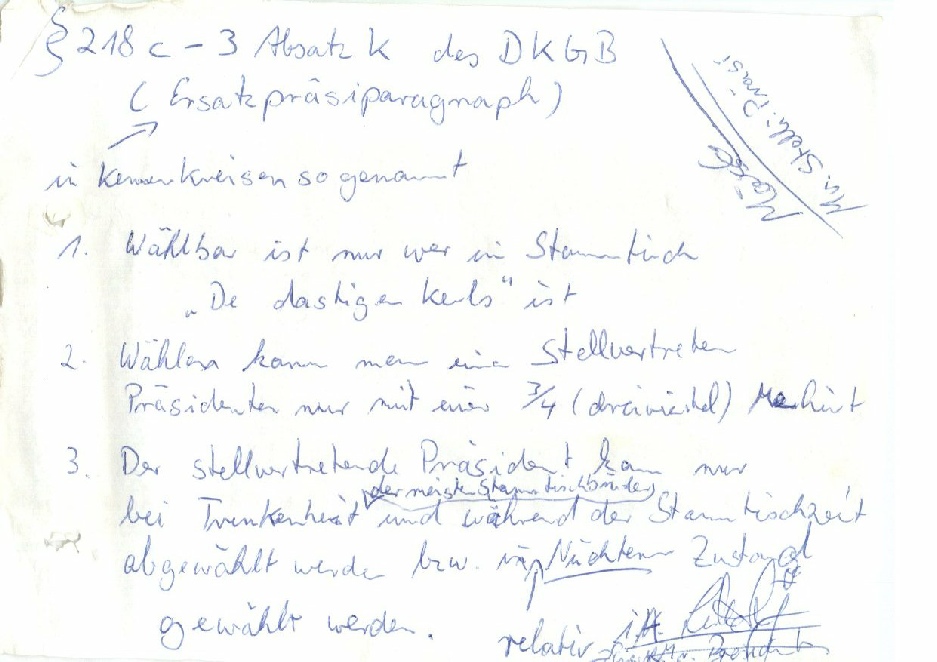 § 218 c - 3 Absatz k des DKGB
(Ersatzpräsiparagraph)
in Kennerkreisen so genannt
Mr. Stellv. Präsi
1. Wählbar ist nur wer in Stammtisch
„De dastigen Kerls" ist
2. Wählen kann man ein Stellvertreter
Präsidenten nur mit einer 3/4 (dreiviertel) Mehrheit
3. Der stellvertretende Präsident kann nur
der meisten Stammtischbrüder
bei Trunkenheit und während der Stammtischzeit
abgewählt werden bzw. in Nüchternen Zustand
gewählt werden.
relativ i.A.